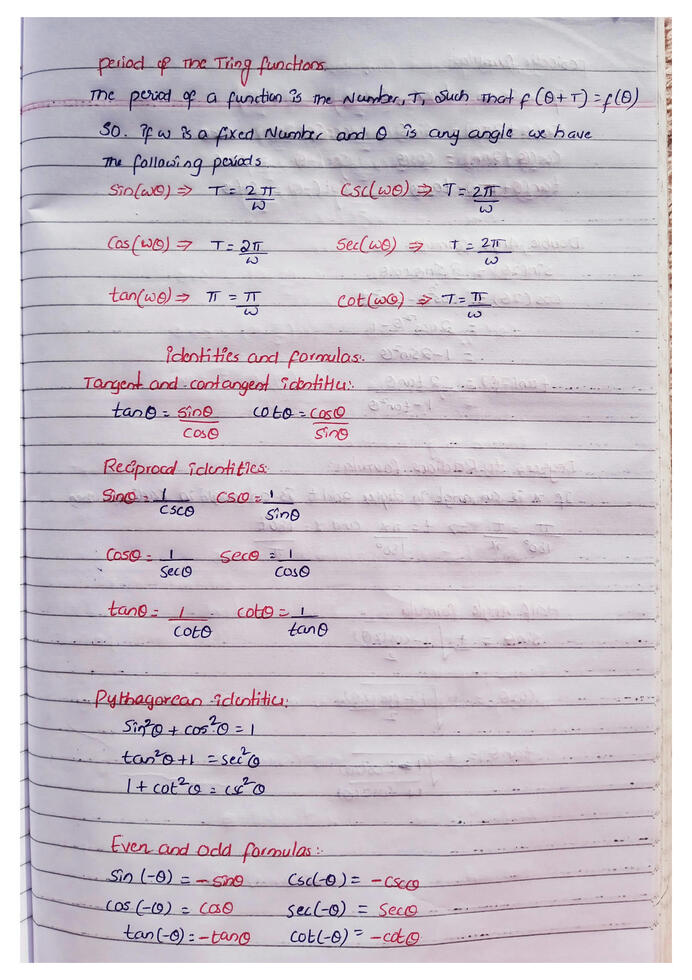 period of the Tring functions.
The period of a function is the Number, T, such that f(θ+T)=f(θ)
So. if ω is a fixed Number and θ is any angle we have
the following periods.
Sin(ωθ) ⇒ T = 2π/ω Csc(ωθ) ⇒ T = 2π/ω
Cos(ωθ) ⇒ T = 2π/ω Sec(ωθ) ⇒ T = 2π/ω
tan(ωθ) ⇒ π = π/ω Cot(ωθ) ⇒ T = π/ω
identities and formulas:.
Tangent and contangent identities:
tanθ = sinθ/cosθ cotθ = cosθ/sinθ
Reciprocal identities:
Sinθ = 1/cscθ CSθ = 1/sinθ
Cosθ = 1/secθ Secθ = 1/cosθ
tanθ = 1/cotθ cotθ = 1/tanθ
Pythagorean identities:
Sin²θ + cos²θ = 1
tan²θ+1 = sec²θ
1 + cot²θ = csc²θ
Even and odd formulas:-
Sin (-θ) = -sinθ Csc(-θ) = -cscθ
cos (-θ) = cosθ sec(-θ) = Secθ
tan(-θ) = -tanθ cot(-θ) = -cotθ